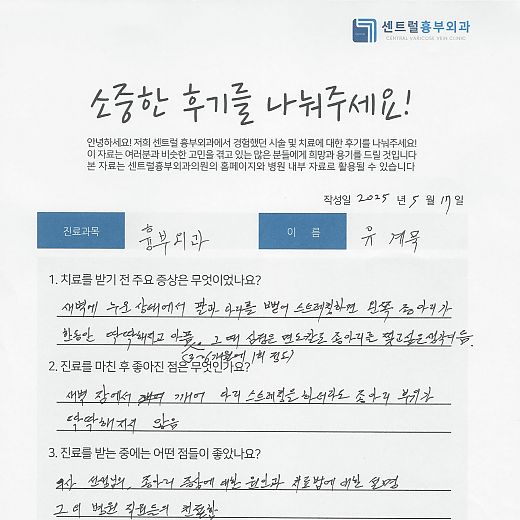 센트럴흉부외과
CENTRAL VARICOSE VEIN CLINIC
소중한 후기를 나눠주세요!
안녕하세요! 저희 센트럴 흉부외과에서 경험했던 시술 및 치료에 대한 후기를 나눠주세요!
이 자료는 여러분과 비슷한 고민을 겪고 있는 많은 분들에게 희망과 용기를 드릴 것입니다
본 자료는 센트럴흉부외과의원의 홈페이지와 병원 내부 자료로 활용될 수 있습니다
작성일 2025 년 5 월 17 일
진료과목 흉부외과 이 름 유 계목
1. 치료를 받기 전 주요 증상은 무엇이었나요?
새벽에 누운 상태에서 팔과 다리를 뻗어 스트레칭하면 왼쪽 종아리가
한동안 딱딱해지고 아픔 그 때 심정은 면도칼로 종아리를 찢고싶은 생각이 듦.
(3~6개월에 1회 정도)
2. 진료를 마친 후 좋아진 점은 무엇인가요?
새벽 잠에서 깨어 다리 스트레칭을 하더라도 종아리 부위가
딱딱해지지 않음
3. 치료를 받는 중에는 어떤 점들이 좋았나요?
의사 선생님의, 종아리 증상에 대한 원인과 치료법에 대한 설명
그 외 병원 직원들의 친절함